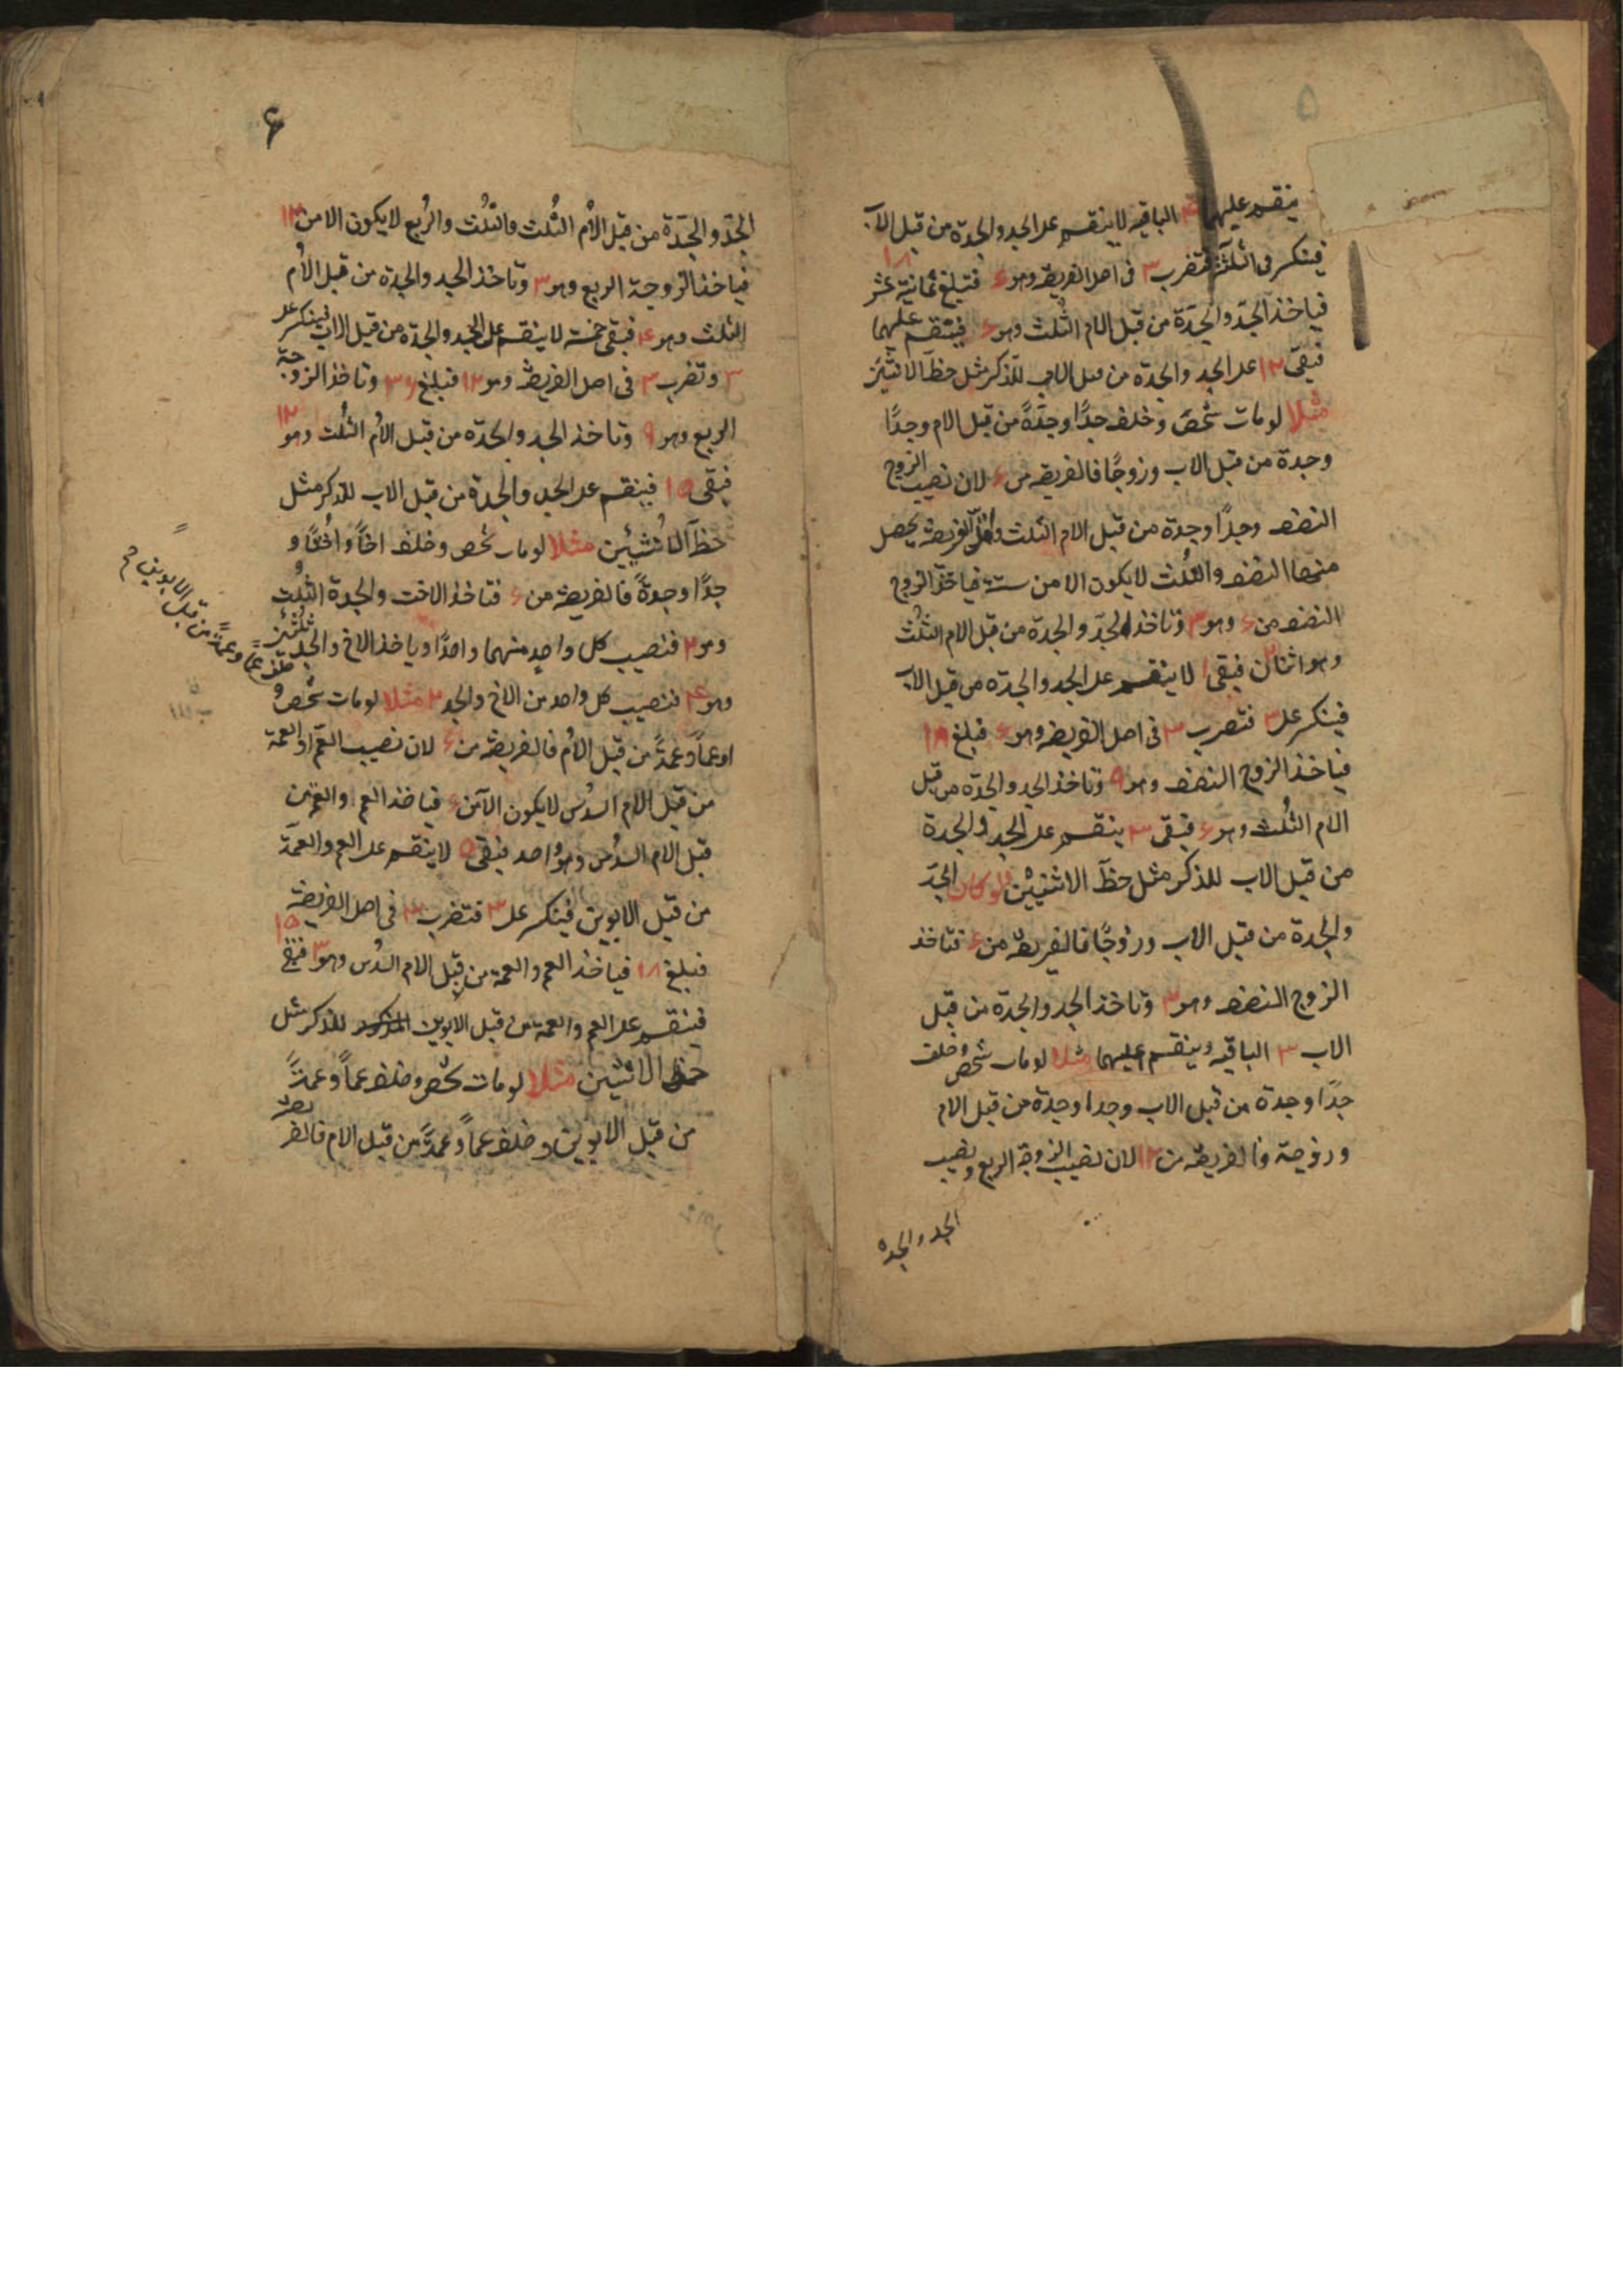 ۵
ينقسم عليهما ۴ الباقيه لا ينقسم على الجد والجدة من قبل الاب
فينكسر فى الثلثة فتضرب ۳ فى اصل الفريضه وهو ۶ فتبلغ ثمانية عشر ۱۸
فياخذ الجدّ والجدّة من قبل الام الثلث وهو ۶ فينقسم عليهما
فبقى ۱۲ على الجد والجدة من قبل الاب للذكر مثل حظّ الانثيين
مثلا لو مات شخص وخلف جدًّا وجدّةً من قبل الام وجدًّا
وجدة من قبل الاب وزوجًا فالفريضه من ۶ لان نصيب الزوج
النصف وجدًا وجدة من قبل الام الثلث واقل الفريضة يحصل
منها النصف والثلث لا يكون الا من ستة فياخذ الزوج
النصف من ۶ وهو ۳ وتاخذ الجدّ والجدة من قبل الام الثلث
وهو اثنان ۲ فبقى ۱ لا ينقسم على الجد والجدّه من قبل الاب
فينكسر على ۳ فتضرب ۳ فى اصل الفريضه وهو ۶ فبلغ ۱۸
فياخذ الزوج النصف وهو ۹ وتاخذ الجد والجدّه من قبل
الام الثلث وهو ۶ فبقى ۳ ينقسم على الجد والجدة
من قبل الاب للذكر مثل حظّ الانثيين ولو كان الجدّ
والجدة من قبل الاب وزوجًا فالفريضه من ۶ فتاخذ
الزوج النصف وهو ۳ وتاخذ الجد والجدة من قبل
الاب ۳ الباقيه وينقسم عليهما مثلا لو مات شخص وخلف
جدًا وجدة من قبل الاب وجدا وجدة من قبل الام
وزوجة فالفريضه من ۱۲ لان نصيب الزوجة الربع ونصيب
الجد والجده
۶
الجدّ والجدّة من قبل الأم الثلث والثلث والربع لا يكون الا من ۱۲
فياخذ الزوجة الربع وهو ۳ وتاخذ الجد والجدة من قبل الأم
الثلث وهو ۴ فبقى خمسة لا ينقسم على الجد والجدة من قبل الاب فينكسر على
۳ وتضرب ۳ فى اصل الفريضه وهو ۱۲ فبلغ ۳۶ وتاخذ الزوجة
الربع وهو ۹ وتاخذ الجد والجدّه من قبل الأم الثلث وهو ۱۲
فبقى ۱۵ فينقسم على الجد والجدة من قبل الاب للذكر مثل
حظّ الانثيين مثلا لو مات شخص وخلف اخًا واختًا و
جدًا وجدةً فالفريضه من ۶ فتاخذ الاخت والجدة الثلث
وهو ۲ فنصيب كل واحدٍ منهما واحدًا وياخذ الاخ والجد ثلثين
وهو ۴ فنصيب كل واحد من الاخ والجد ۲ مثلا لو مات شخصُ و
خلف عمًا وعمةً من قبل الابوين
او عماً وعمةً من قبل الأم فالفريضه من ۶ لان نصيب العمّ او العمة
من قبل الام السدس لا يكون الا من ۶ فياخذ العم والعمة من
قبل الام السدس وهو واحد فبقى ۵ لا ينقسم على العم والعمّة
من قبل الابوين فينكسر على ۳ فتضرب ۳ فى اصل الفريضه
فبلغ ۱۸ فياخذ العم والعمة من قبل الام السدس وهو ۳ فبقى ۱۵
فينقسم على العم والعمة من قبل الابوين للذكر مثل
حظّ الانثيين مثلا لو مات شخص وخلف عماً وعمةً
من قبل الابوين وخلف عماً وعمةً من قبل الام فالفريضه